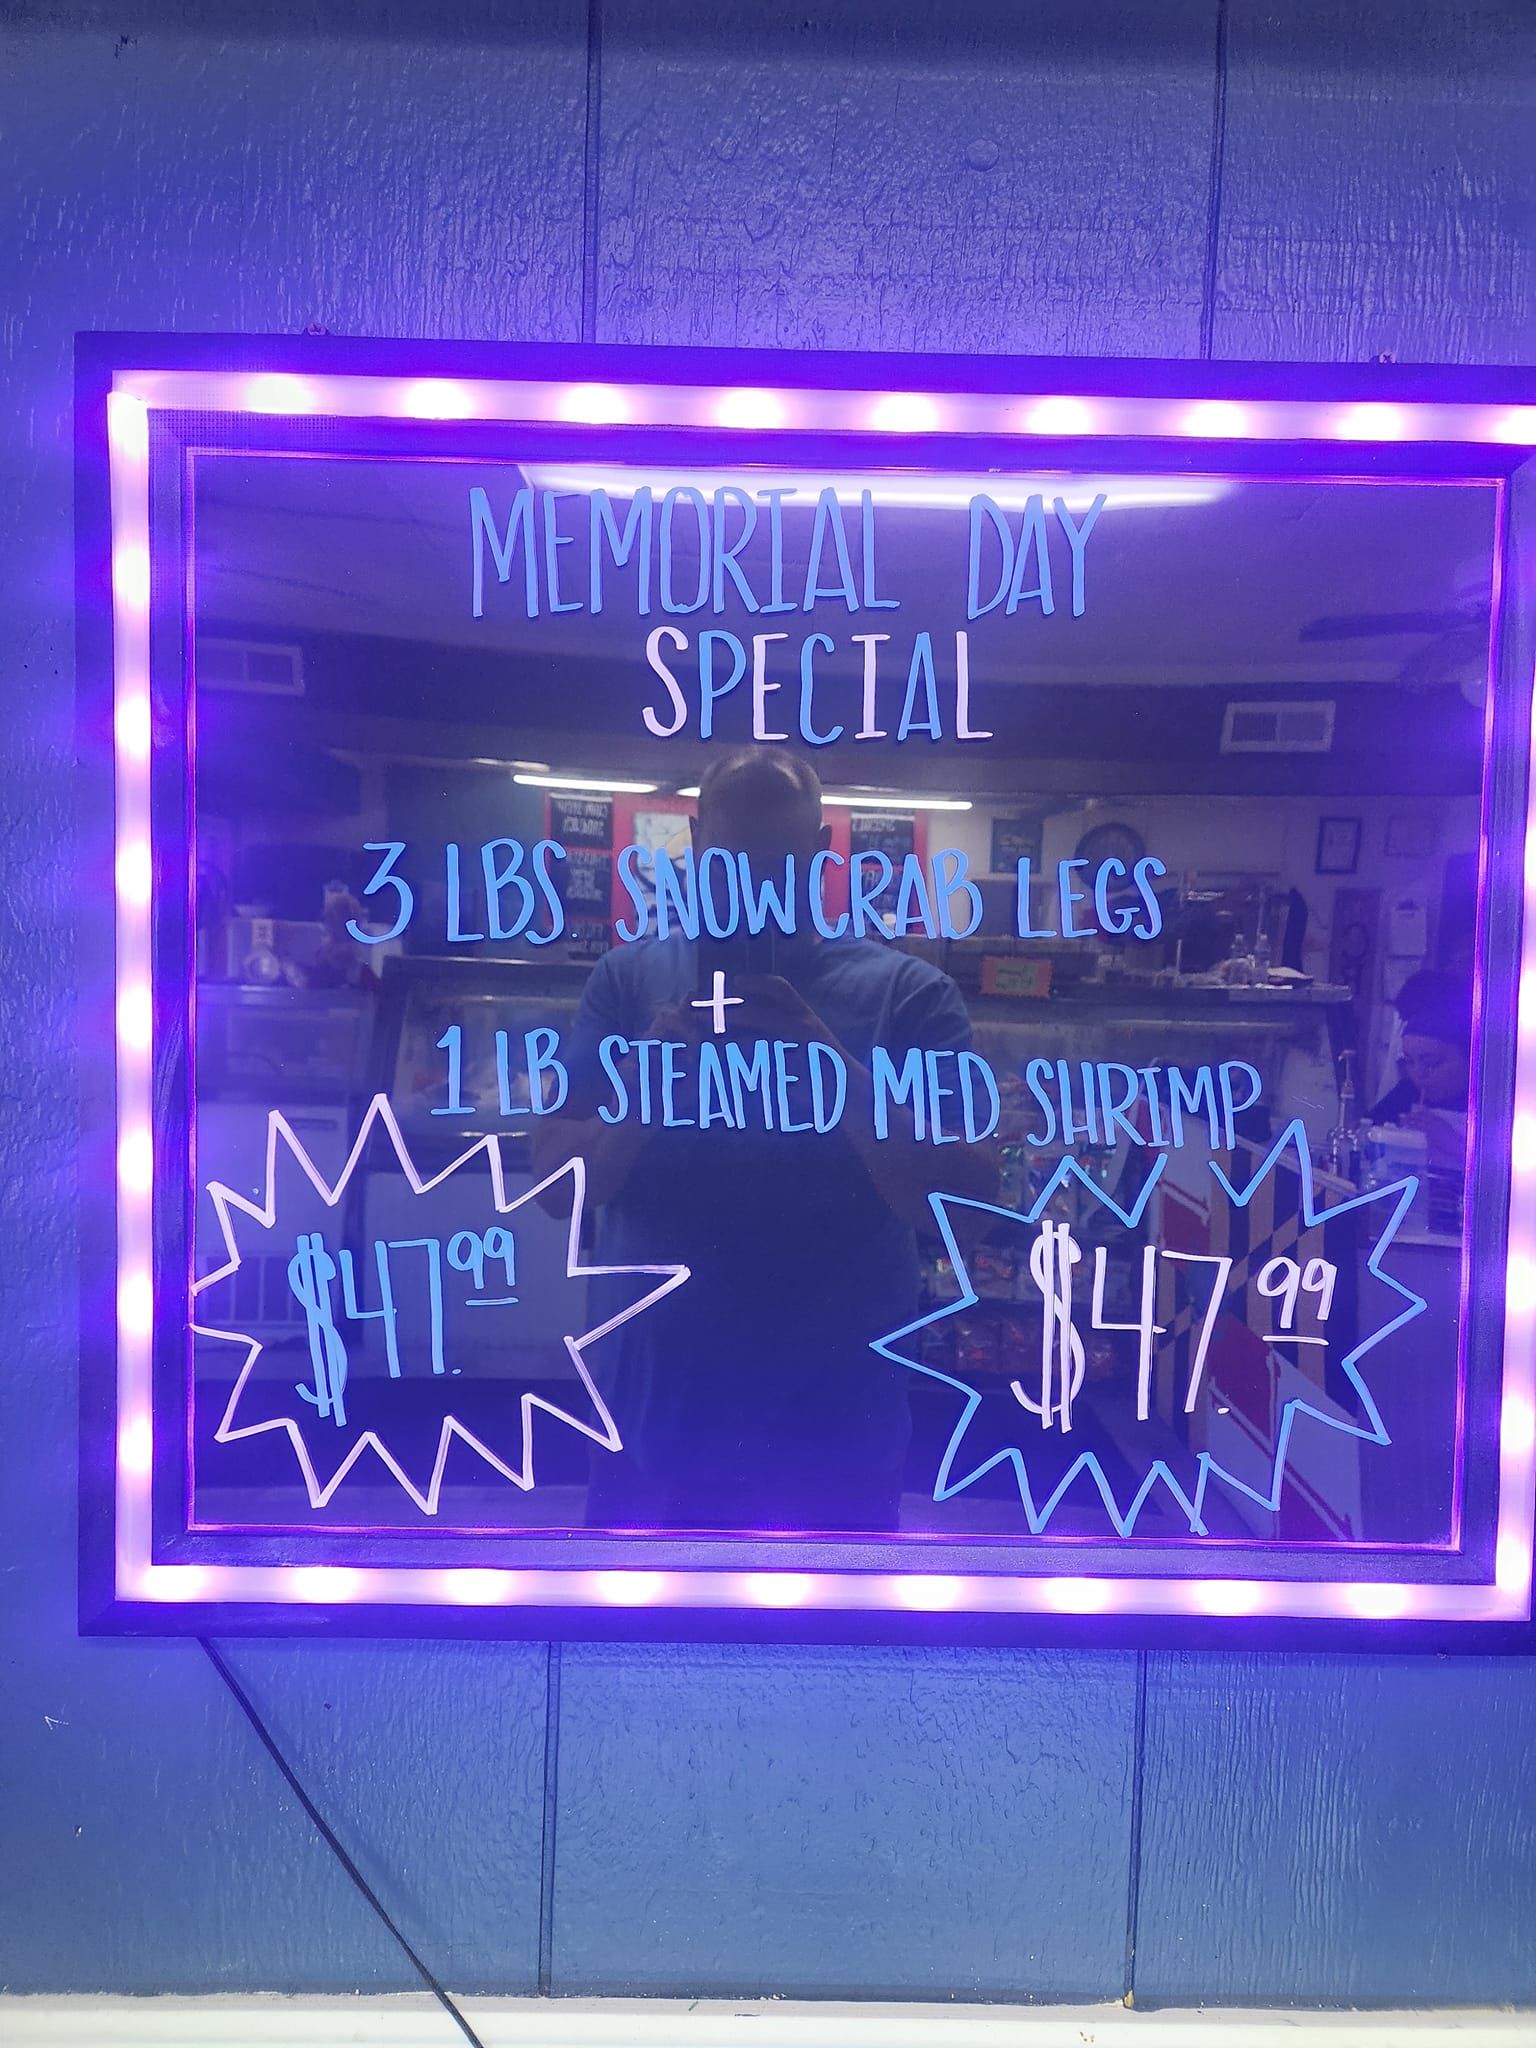 MEMORIAL DAY
SPECIAL
3 LBS. SNOWCRAB LEGS
+
1 LB STEAMED MED. SHRIMP
$47.99
$47.99